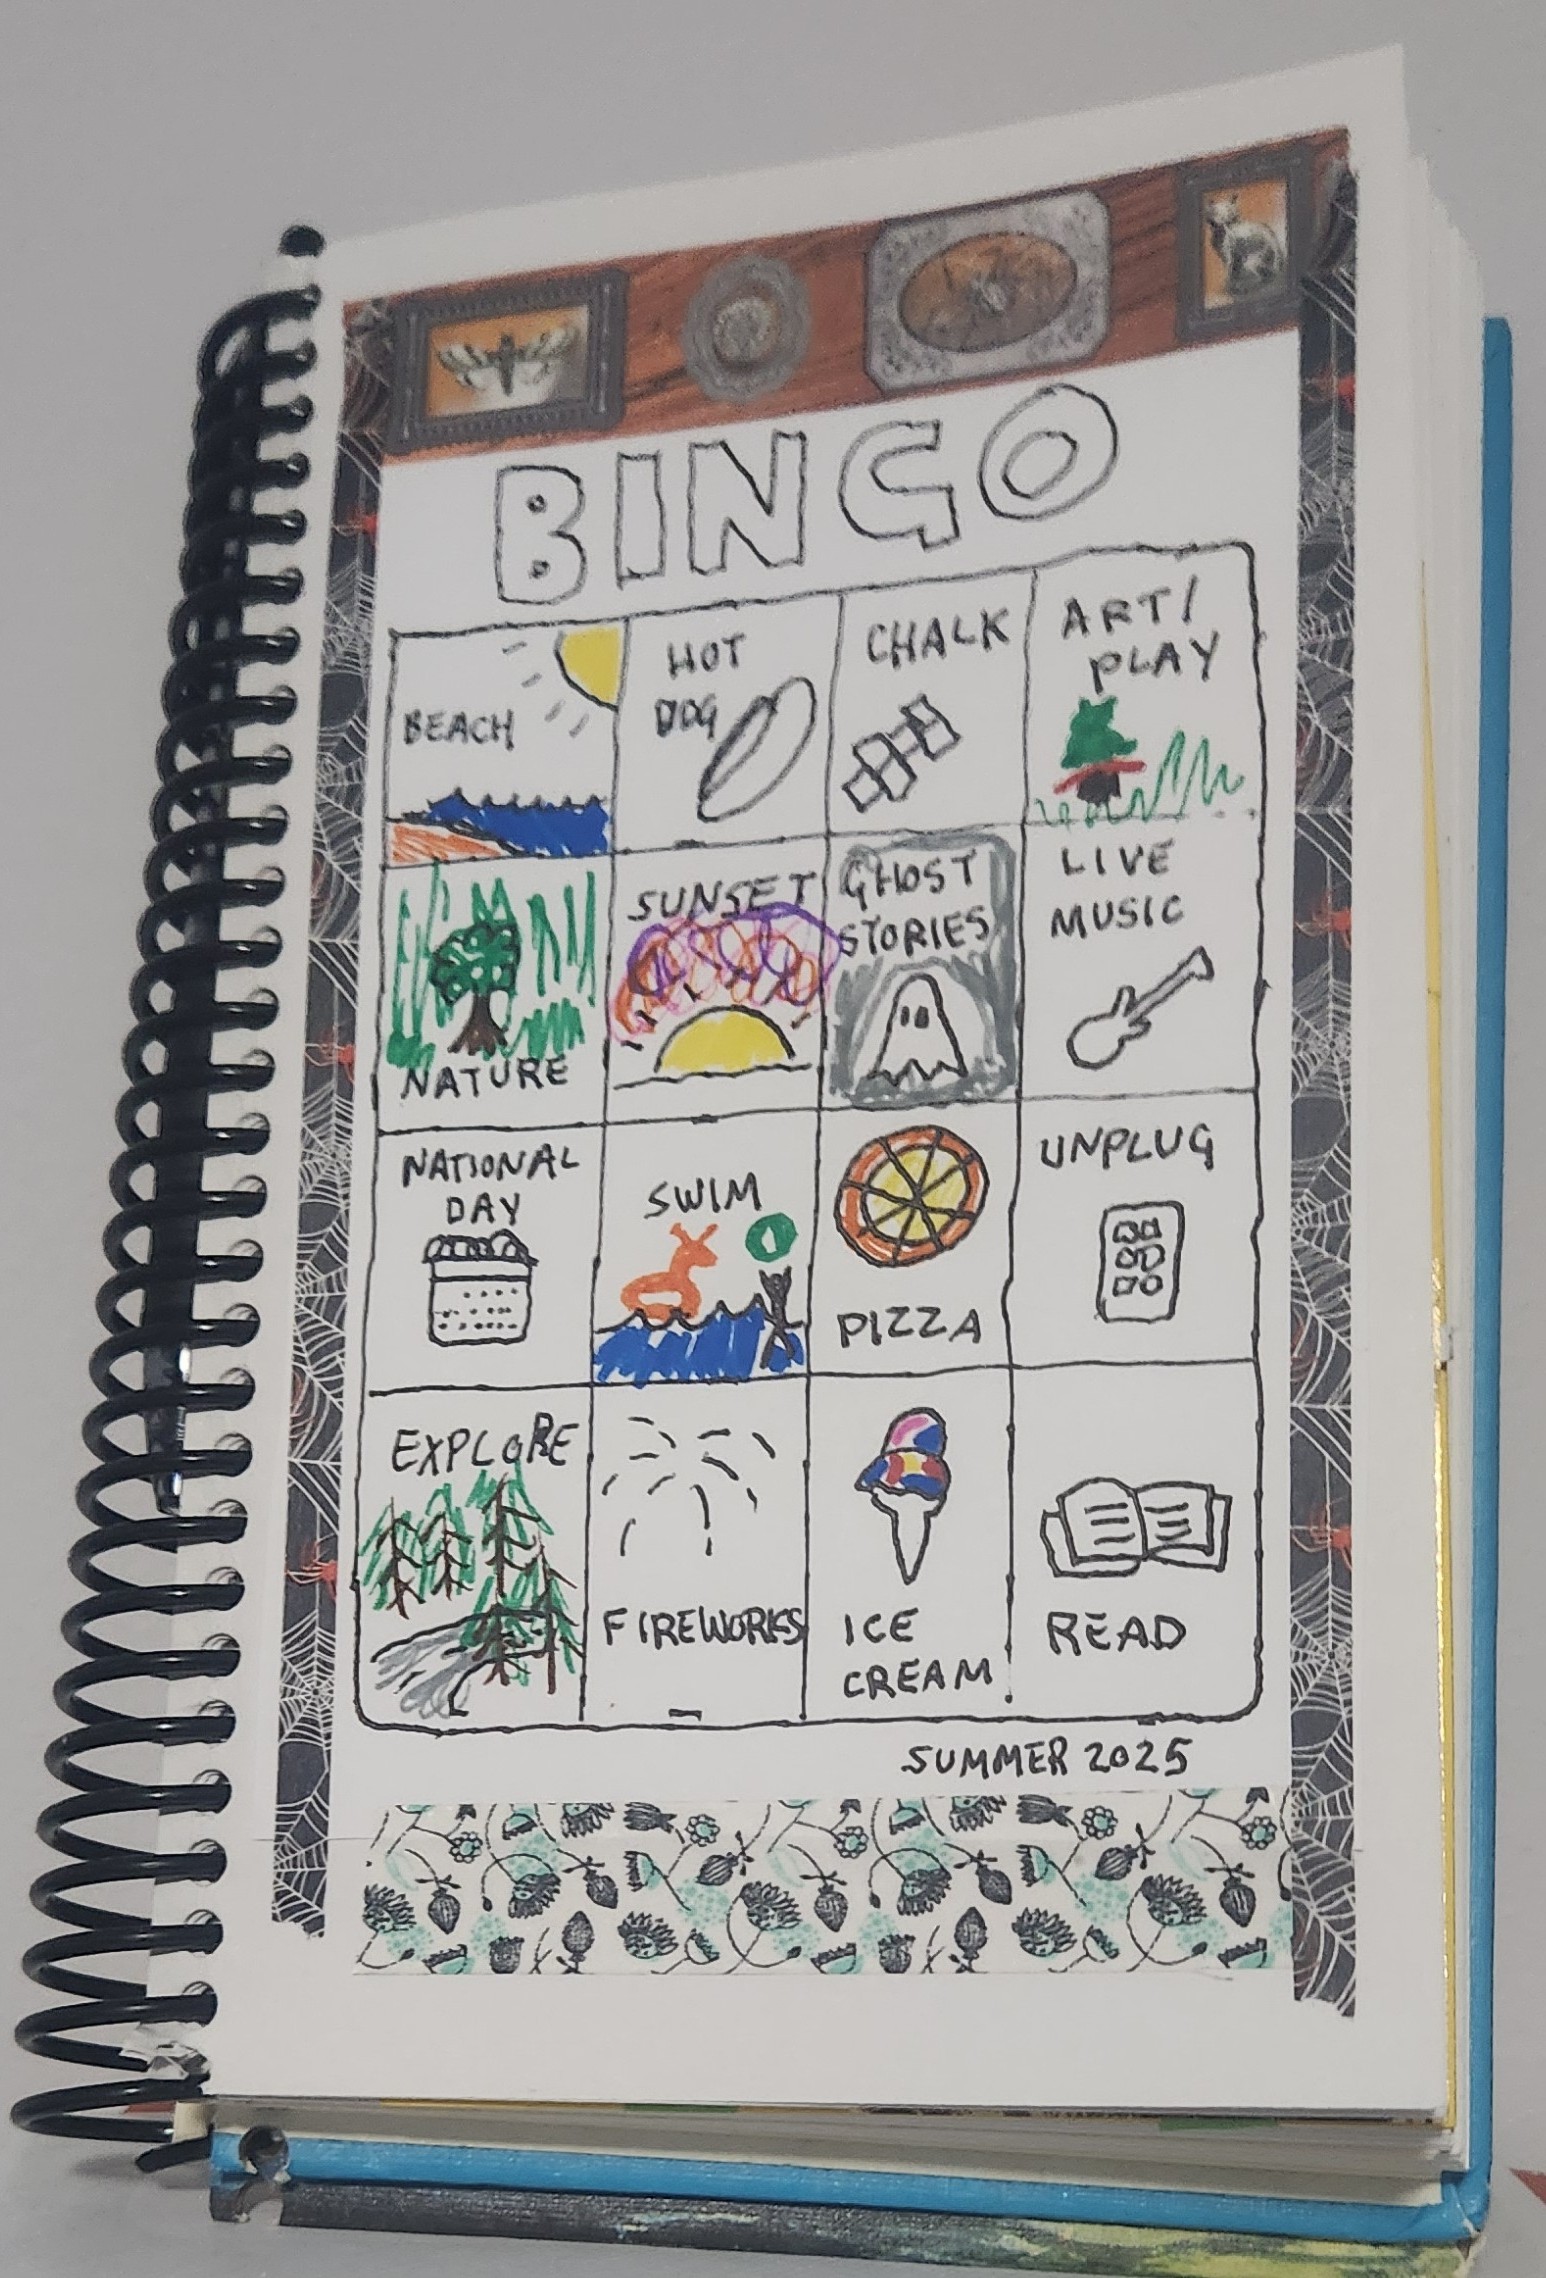 BINGO
BEACH
HOT
DOG
CHALK
ART/
PLAY
NATURE
SUNSET
GHOST
STORIES
LIVE
MUSIC
NATIONAL
DAY
SWIM
PIZZA
UNPLUG
EXPLORE
FIREWORKS
ICE
CREAM
READ
SUMMER 2025